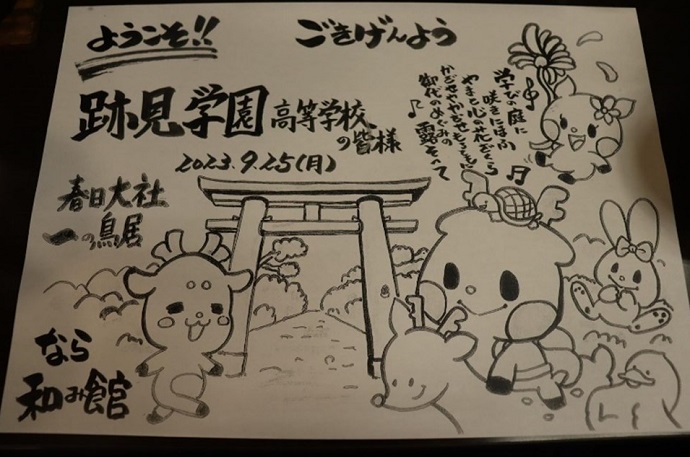 ようこそ!!
ごきげんよう
跡見学園高等学校の皆様
2023.9.25(月)
学びの庭に
咲きにほふ
やまと心の花ざくら
かざせやかざせもろともに
御代のめぐみの
露そへて
春日大社
一の鳥居
なら
和み館